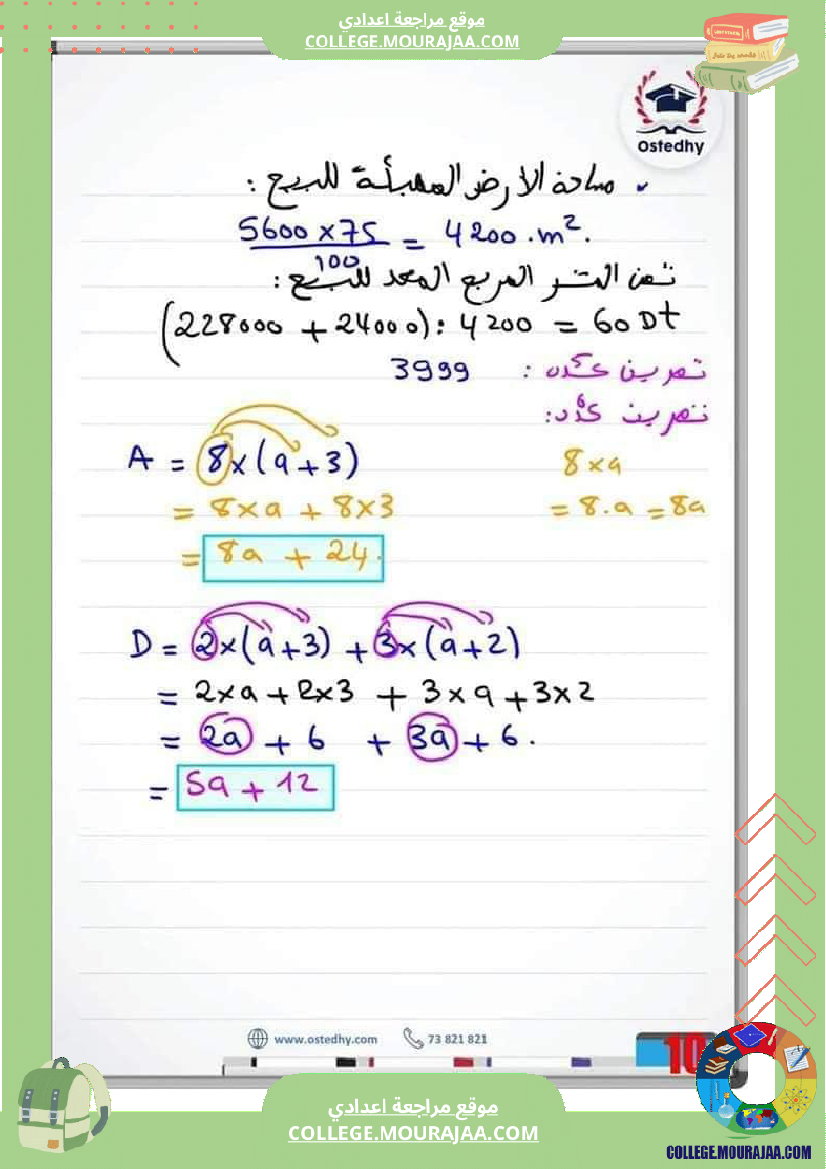 موقع مراجعة اعدادي
COLLEGE.MOURAJAA.COM
Ostedhy
مساحة الأرض المهيأة للبيع :
5600 × 75 / 100 = 4200 . m².
ثمن المتر المربع المعد للبيع :
(228000 + 24000) : 4200 = 60 Dt
3999 :
A = 8×(a+3)
8×a
= 8×a + 8×3
= 8.a = 8a
= 8a + 24.
D = 2×(a+3) + 3×(a+2)
= 2×a + 2×3 + 3×a + 3×2
= 2a + 6 + 3a + 6.
= 5a + 12
www.ostedhy.com 73 821 821
10
موقع مراجعة اعدادي
COLLEGE.MOURAJAA.COM
COLLEGE.MOURAJAA.COM